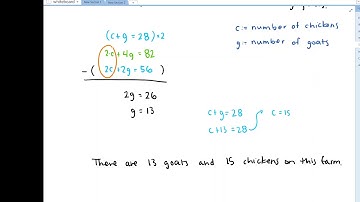 (c+g = 28)×2
2c+4g = 82
- (2c+2g = 56)
2g = 26
g = 13
c = number of chickens
g = number of goats
c+g = 28
c+13 = 28
c = 15
There are 13 goats and 15 chickens on this farm